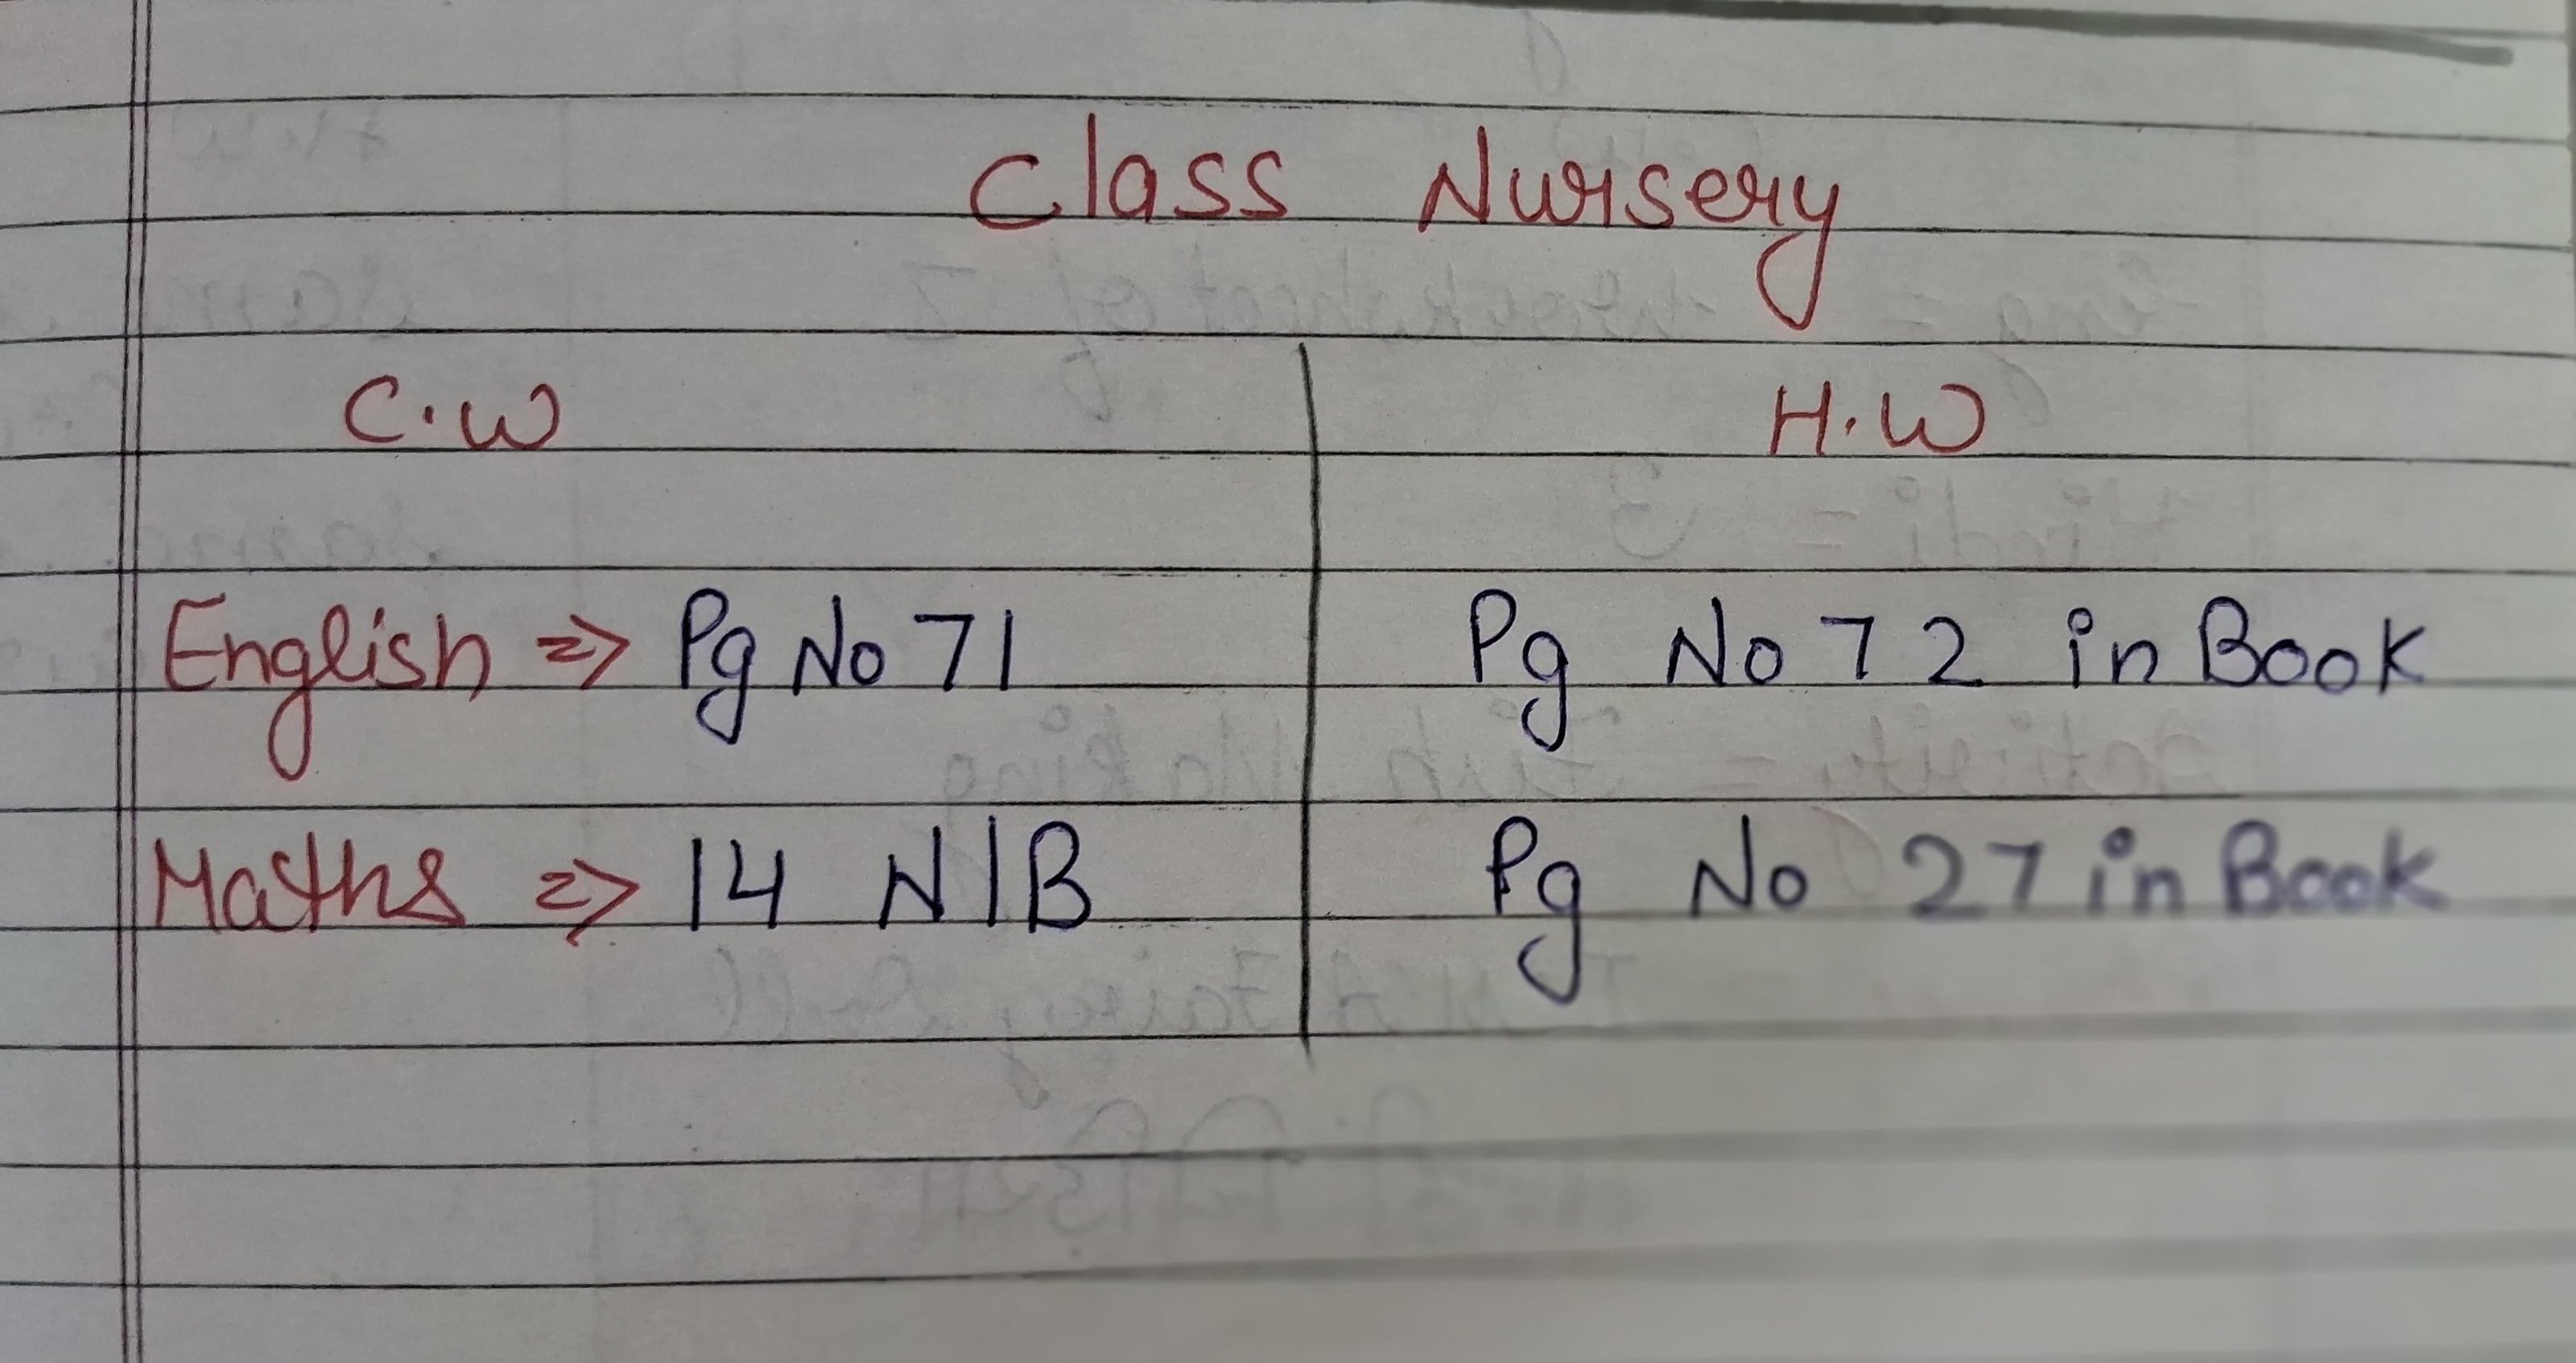 Class Nursery
C.W H.W
English => Pg No 71 Pg No 72 in Book
Maths => 14 N|B Pg No 27 in Book